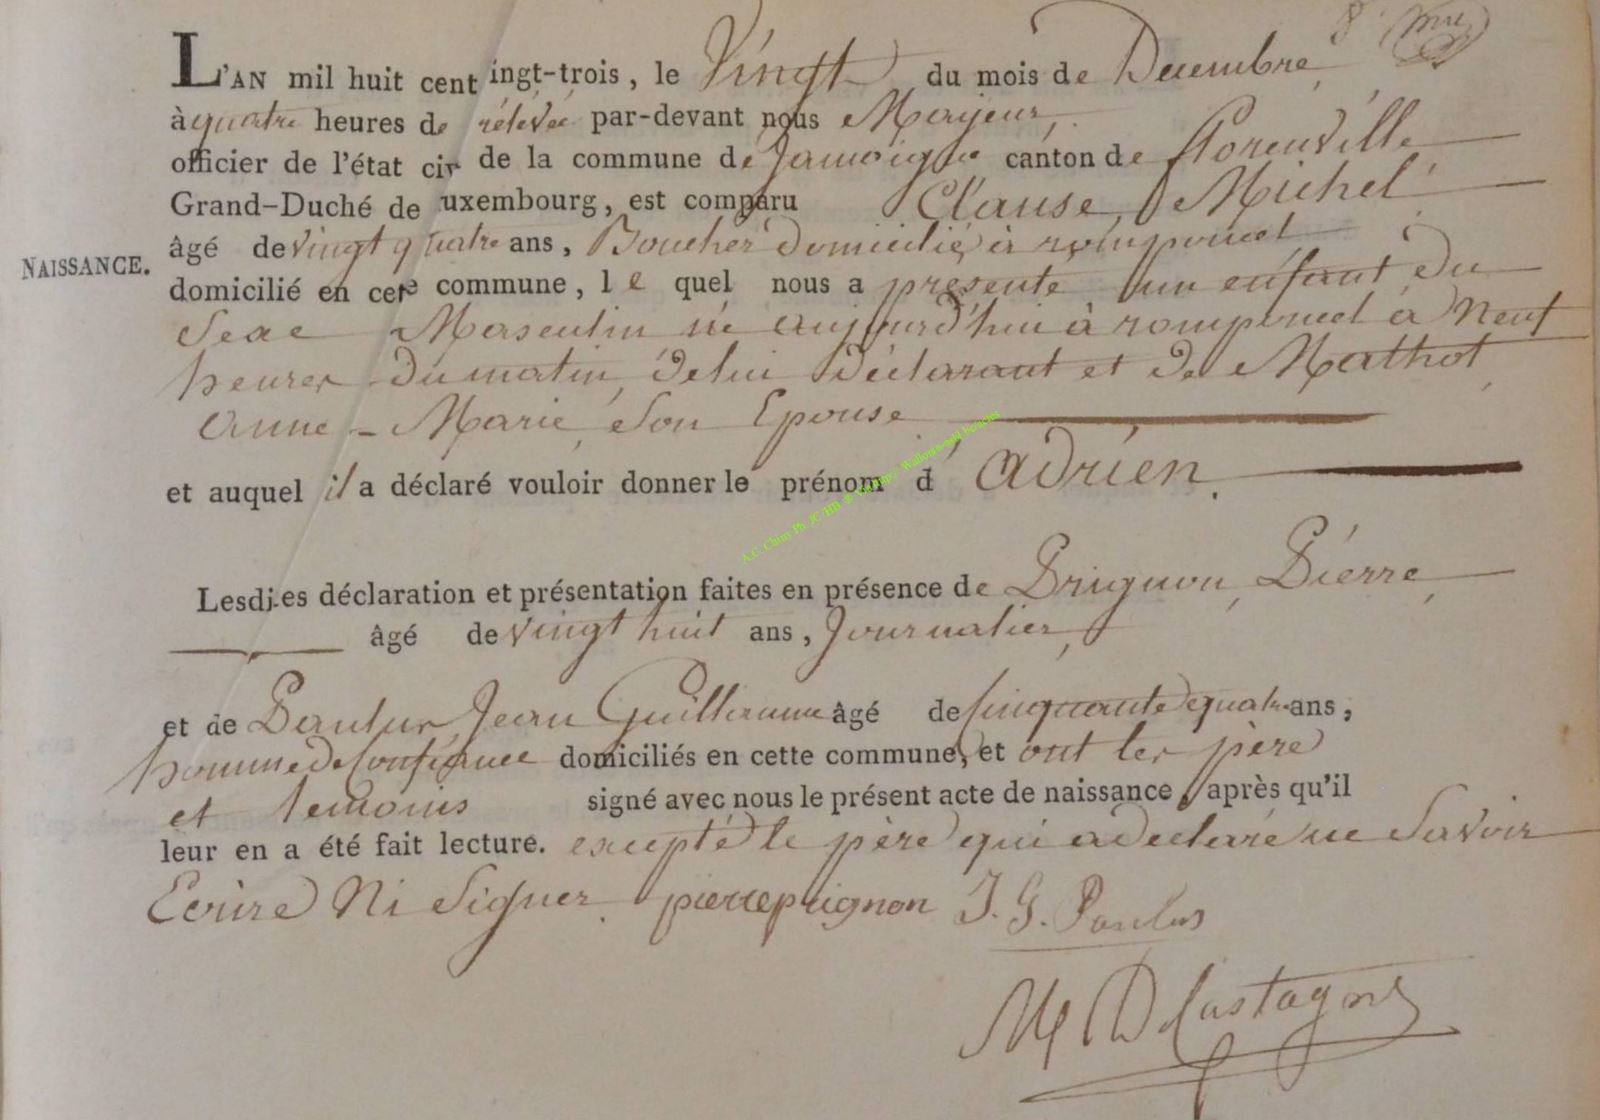 L'AN mil huit cent ingt-trois, le Vingt du mois de Decembre
à quatre heures de rélévée par-devant nous Mayeur,
officier de l'état civ de la commune de Jamoigne canton de florenville
Grand-Duché de uxembourg, est comparu Clause, Michel
âgé de vingt quatre ans, Boucher domicilié à romponcel
NAISSANCE.
domicilié en cete commune, le quel nous a presenté un enfant du
Sexe Masculin né aujourd'hui à romponcel à Neuf
heures du matin, de lui déclarant et de Mathot
Anne - Marie, Son Epouse
et auquel il a déclaré vouloir donner le prénom d'Adrien.
A.C. Chiny Ph. JC/HB
Lesdi.es déclaration et présentation faites en présence de Prignon, Pierre,
âgé de vingt huit ans, Journalier,
et de Paulus Jean Guillaume âgé de Cinquante quatre ans,
homme de Confiance domiciliés en cette commune, et ont les père
et temoins signé avec nous le présent acte de naissance, après qu'il
leur en a été fait lecture. excepté le père qui a declaré ne Savoir
Ecrire Ni Signer. pierre prignon J. G. Paulus